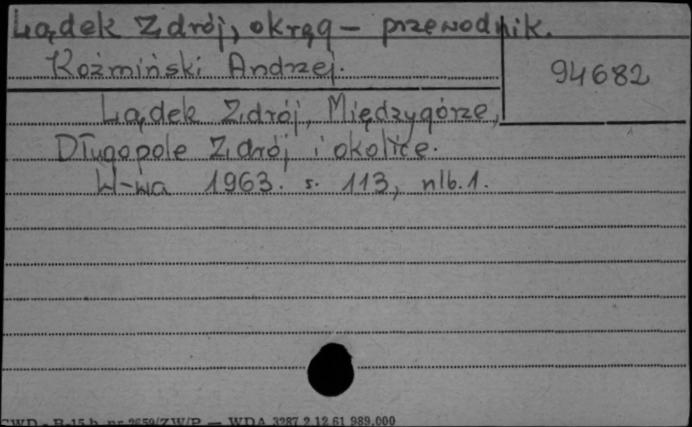 Lądek Zdrój, okrąg - przewodnik.
Koźmiński Andrzej.
94682
Lądek Zdrój, Międzygórze,
Długopole Zdrój i okolice.
W-wa 1963. s. 113, nlb. 1.
CWD - B-15 b. nr 2659/ZW/P — WDA 3287 2.12.61 989.000